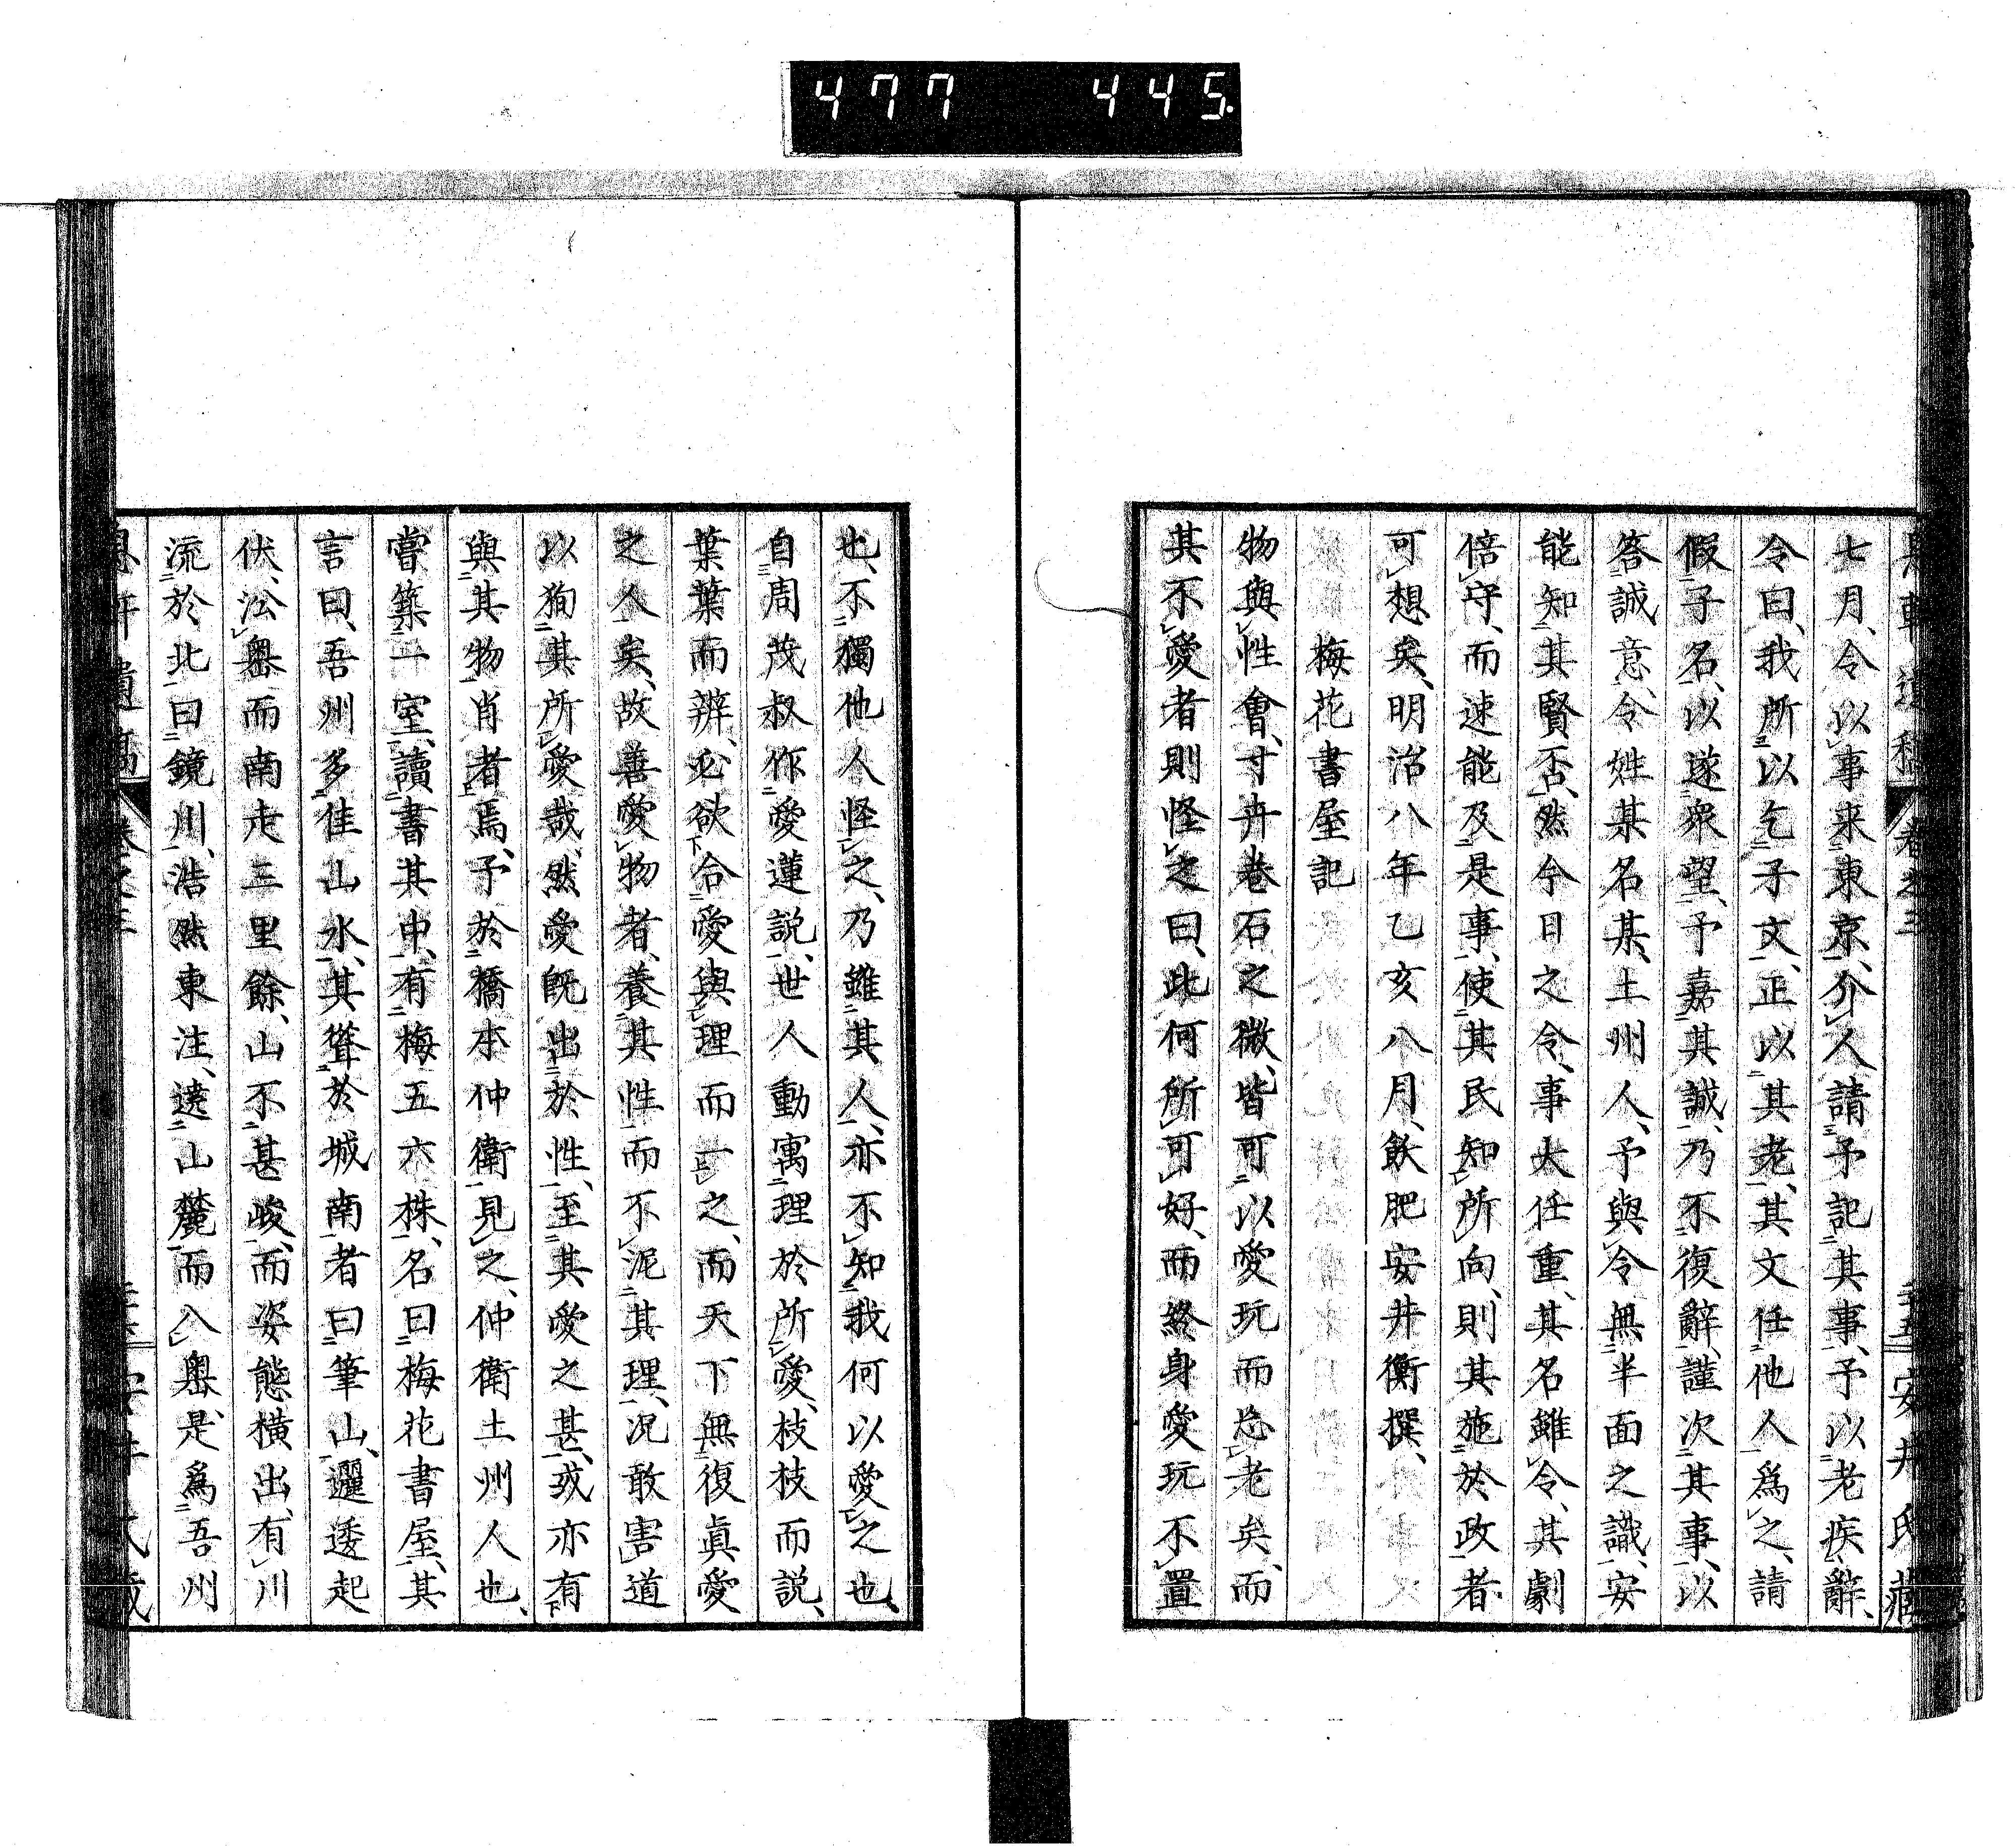 477 445.
軒遺稿 卷之三 安井氏藏
七月、令以事来東京、介人請予記其事、予以老疾辭、
令曰、我所以乞子文、正以其老、其文任他人爲之、請
假子名、以遂衆望、予嘉其誠、乃不復辭、謹次其事、以
答誠意、令姓某名某、土州人、予與令無半面之識、安
能知其賢否、然今日之令、事大任重、其名雖令、其劇
倍守、而速能及是事、使其民知所向、則其施於政者
可想矣、明治八年乙亥八月、飫肥安井衡撰、
梅花書屋記
物與性會、寸卉巻石之微、皆可以愛玩而忘老矣、而
其不愛者則怪之曰、此何所可好、而終身愛玩不置
也、不獨他人怪之、乃雖其人、亦不知我何以愛之也、
自周茂叔作愛蓮説、世人動寓理於所愛、枝枝而説、
葉葉而辨、必欲合愛與理而一之、而天下無復眞愛
之人矣、故善愛物者、養其性而不泥其理、况敢害道
以狥其所愛哉、然愛既出於性、至其愛之甚、或亦有
與其物肖者焉、予於橋本仲衛見之、仲衛土州人也、
嘗築一室、讀書其中、有梅五六株、名曰梅花書屋、其
言曰、吾州多佳山水、其聳於城南者曰筆山、邐逶起
伏、㳂奥而南走三里餘、山不甚峻、而姿態橫出、有川
流於北、曰鏡川、浩然東注、遶山麓而入奥、是爲吾州
軒遺稿 卷之三 安井氏藏